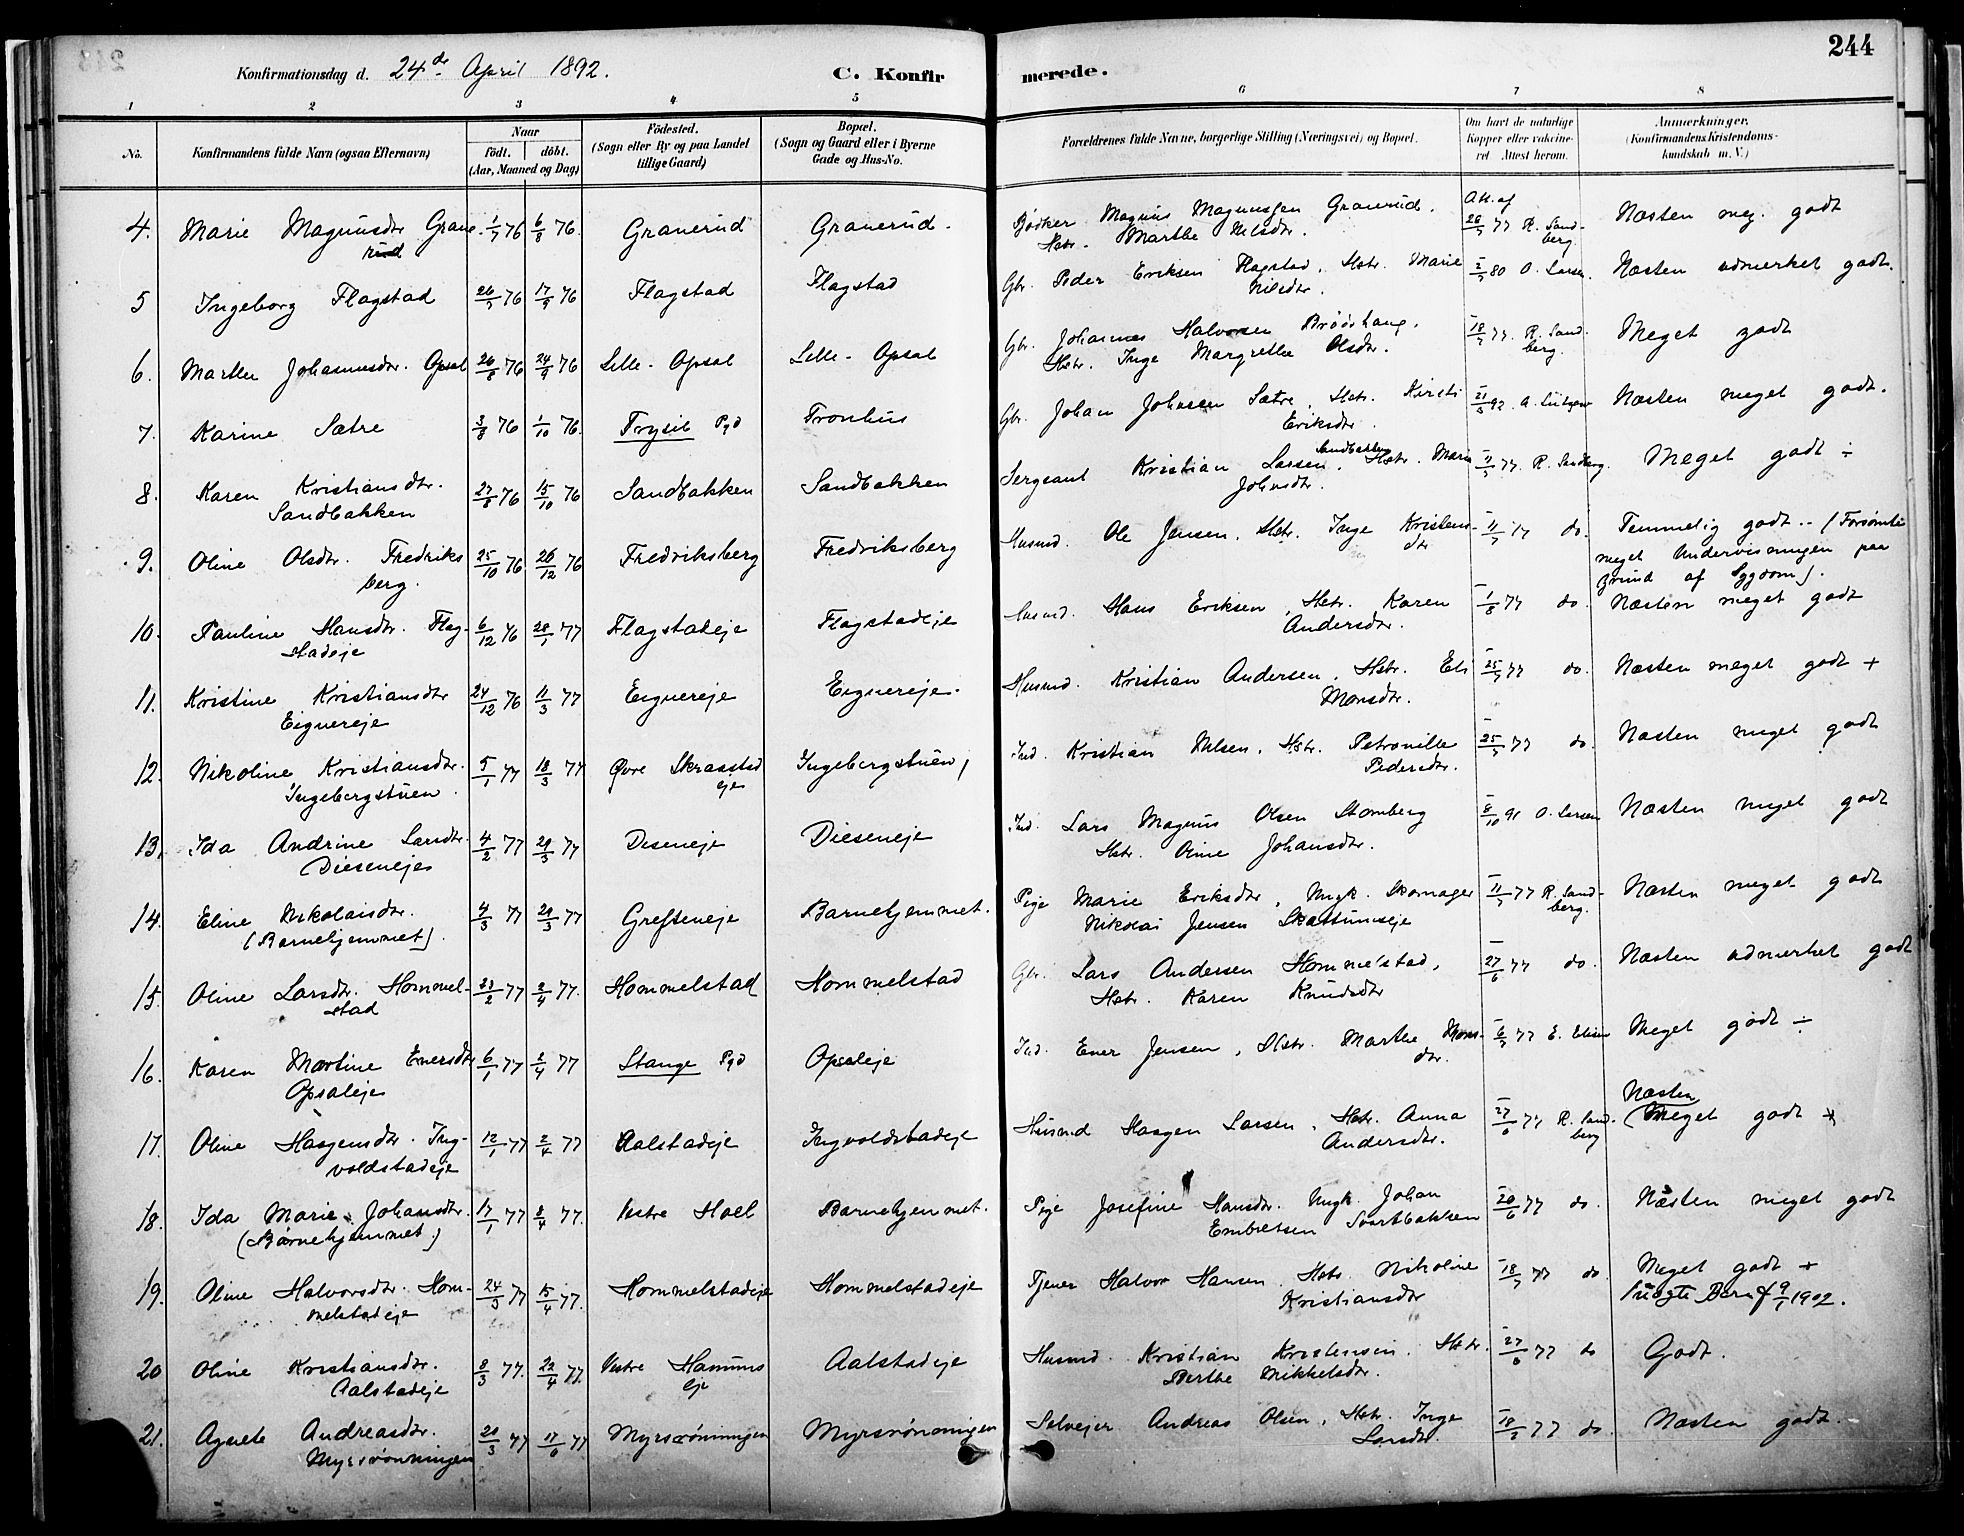 244
Konfirmationsdag d. 24de April 1892.
C. Konfirmerede.
1 2 3 4 5 6 7 8
No.
Konfirmandens fulde Navn (ogsaa Efternavn)
Naar
födt. döbt.
(Aar, Maaned og Dag)
Födested.
(Sogn eller By og paa Landet
tillige Gaard)
Bopæl.
(Sogn og Gaard eller i Byerne
Gade og Hus-No.
Forældrenes fulde Navne, borgerlige Stilling (Næringsvei) og Bopæl.
Om havt de naturlige
Kopper eller vaksine-
ret Attest herom.
Anmerkninger.
(Konfirmandens Kristendoms-
kundskab m. V.)
4. Marie Magnusdtr Grane- 1/7 76 6/8 76. Granerud Granerud. Bødker Magnus Magnussen Granerud. Att. af
rud Hstr. Marthe Nilsdtr. 26/7 77 R. Sand-
berg Næsten meg. godt
5 Ingeborg Flagstad 26/7 76 17/9 76 Flagstad Flagstad Gbr. Peder Eriksen Flagstad, Hstr. Marie 2/7 80 O. Larsen. Næsten udmerket godt.
Nilsdtr.
6. Marthe Johannesdtr. Opsal 26/8 76 24/9 76 Lille-Opsal Lille-Opsal Gbr. Johannes Halvorsen 18/7 77. R. Sand- Meget godt
Hstr. Inge Margrethe Olsdtr. berg.
7. Karine Sætre 3/8 76 1/10 76. Trysil Pgd Tronhus Gbr. Johan Johnsen Sætre, Hstr. Kirsti 21/3 92. Næsten meget godt.
Eriksdtr.
8. Karen Kristiansdtr. 27/8 76 15/10 76 Sandbakken Sandbakken Sergeant Kristian Larsen Sandbakken, Hstr. Marie 11/7 77. R. Sandberg. Meget godt ÷
Sandbakken Johnsdtr.
9. Oline Olsdtr. Fredriks 25/10 76 26/12 76 Fredriksberg Fredriksberg Husmd. Ole Jensen, Hstr. Inge Kristens- 11/7 77 do. Temmelig godt -- (Forsømte
berg. dtr meget Undervisningen paa
grund af Sygdom).
10. Pauline Hansdtr. Flag- 6/12 76 28/1 77 Flagstadeje Flagstadeje Husmd. Hans Eriksen, Hstr. Karen 1/8 77 do. Næsten meget godt
stadeje Andersdtr.
11. Kristine Kristiansdtr 24/12 76 11/3 77 Eignereje Eignereje. Husmd. Kristian Andersen, Hstr. Eli 25/7 77 do. Næsten meget godt +
Eignereje Monsdtr.
12. Nikoline Kristiansdtr. 5/1 77 18/3 77 Øvre Skraastad Ingebergstuen, Ind. Kristian Nilsen, Hstr. Petronille 25/7 77 do. Næsten meget godt
Ingebergstuen eje Pedersdtr.
13. Ida Andrine Larsdtr. 4/2 77 29/3 77 Deseneje Dieseneje Ind. Lars Magnus Olsen Stomberg 8/10 91 O. Larsen Næsten meget godt
Dieseneje Hstr. Oline Johansdtr.
14. Eline Nikolaisdtr. 4/3 77 29/3 77 Grefseneje Barnehjemmet. Pige Marie Eriksdtr, Ungk. Skomager 11/7 77 R. Sand- Næsten meget godt
(Barnehjemmet). Nikolai Jensen Skattumseje berg.
15. Oline Larsdtr. Hommel- 23/2 77 2/4 77. Hommelstad Hommelstad Gbr. Lars Andersen Hommelstad, 27/6 77 do. Næsten udmerket godt
stad Hstr. Karen Knudsdtr
16. Karen Martine Enersdtr. 6/1 77 2/4 77 Stange Pgd Opsaleje Ind. Ener Jensen, Hstr. Marthe Mons- 6/7 77 Meget godt ÷
Opsaleje dtr.
17. Oline Haagensdtr. Ing- 12/1 77 2/4 77 Aalstadeje Ingvoldstadeje Husmd Haagen Larsen, Hstr. Anna 27/6 77 R. Sand- Næsten
voldstadeje Andersdtr. berg (Meget godt +
18. Ida Marie Johansdtr. 17/1 77 8/4 77. Vestre Hoel Barnehjemmet. Pige Josefine Hansdtr. Ungk. Johan 20/6 77 do. Næsten meget godt
(Barnehjemmet) Embretsen Svartbakken
19. Oline Halvorsdtr. Hom- 24/3 77 15/4 77. Hommelstadeje Hommelstadeje Tjener Halvor Hansen, Hstr. Nikoline 18/7 77 do. Meget godt +
melstadeje Kristiansdtr 9/1 1902.
20 Oline Kristiansdtr. 8/3 77. 22/4 77. Vestre Hammers Aalstadeje Husmd. Kristian Kristensen. Hstr. 27/6 77 do Godt.
Aalstadeje eje Berthe Mikkelsdtr.
21. Agnete Andreasdtr. 21/3 77 17/6 77 Myrsrönningen Myrsrönningen Selvejer Andreas Olsen, Hstr. Inge 18/7 77 do. Næsten godt.
Myrsrönningen Larsdtr.